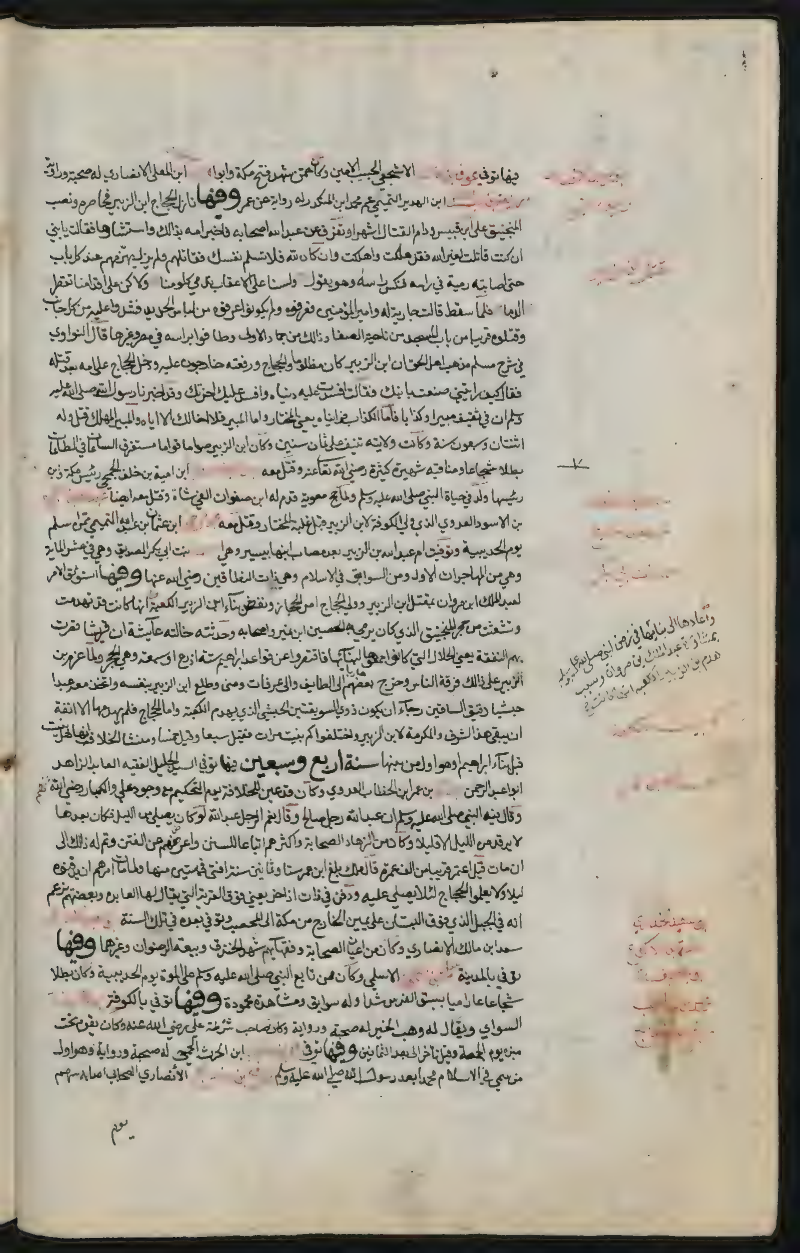 فيها توفي عوف بن الاشجعي الحبيب الامين وكان ممن شهد فتح مكة وابوا ابن المعلى الانصاري له صحبة ورواية
ابن الهدير التيمي عم محمد ابن المنكدر له رواية عن عمر وفيها نازل الحجاج ابن الزبير فحاصره ونصب
المنجنيق على ابي قبيس ودام القتال اشهرا وتفرق عن عبد الله اصحابه فاخبر امه بذالك واستشارها فقالت يا بني
ان كنت قاتلت لغير الله فقد هلكت واهلكت وان كان لله فلا تسلم نفسك فقاتلهم ولم يزل يهزمهم عند كل باب
حتى اصابته رمية في راسه فنكس راسه وهو يقول ولسنا على الاعقاب تدمى كلومنا ولاكن على اقدامنا تقطر
الدما فلما سقط قالت جارية له وامير المؤمنين فعرفوه ولم يكونوا عرفوه من لباس الحديد فشدوا عليه من كل جانب
وقتلوه قريبا من باب المسجد من ناحية الصفا وذالك من جماد الاولى وطافوا براسه في مصر وغيرها قال النواوي
في شرح مسلم مذهب اهل الحق ان ابن الزبير كان مظلوما والحجاج ورفقته خارجون عليه ودخل الحجاج على امه بعد قتله
فقال كيف رايتيني صنعت بابنك فقالت افسدت عليه دنياه وافسد عليك اخرتك وقد اخبرنا رسول الله صلى الله عليه
وسلم ان في ثقيف مبيرا وكذابا فاما الكذاب فرايناه يعني المختار واما المبير فلا اخالك الا اياه والمبير المهلك قتل وله
اثنتان وسبعون سنة وكانت ولايته تنيف على ثمان سنين وكان ابن الزبير صواما قواما مستغرق الساعات في الطاعات
بطلا شجاعا ومناقبه شهيرة كثيرة رضي الله تعا عنه وقتل معه ابن امية بن خلف الجمحي رئيس مكة وابن
رئيسها ولد في حياة النبي صلى الله عليه وسلم ولما حج معوية قدم له ابن صفوان الفي شاة وقتل معه ايضا
بن الاسود العدوي الذي ولي الكوفة لابن الزبير قبل غلبة المختار وقتل معه ابن عثمان بن عبد الله التيمي ممن اسلم
يوم الحديبية وتوفيت ام عبد الله بن الزبير بعد مصاب ابنها بيسير وهي بنت ابي بكر الصديق وهي في عشر المايه
وهي من المهاجرات الاول ومن السوابق في الاسلام وهي ذات النطاقين رضي الله عنها وفيها استوثق الامر
لعبد الملك ابن مروان بمقتل ابن الزبير وولي الحجاج امر الحجاز ونقض بناء ابن الزبير الكعبة انها كانت قد تهدمت
وتشعثت من حجر المنجنيق الذي كان يرمي به الحصين ابن نمير واصحابه وحدثته خالته عائشة ان قريشا قصرت
بهم النفقة يعني الحلال التي كانوا جمعوها لبنائها فاقتصروا عن قواعد ابراهيم ستة اذرع او سبعة وهي الحجر ولما عزم بن
الزبير على ذالك فرقه الناس وخرج بعضهم الى الطايف والى عرفات ومنى وطلع ابن الزبير بنفسه واتخذ معه عبدا
حبشيا دقيق الساقين رجاء ان يكون ذو السويقتين الحبشي الذي يهدم الكعبة واما الحجاج فلم يهدمها الا انفة
ان يبقى هذا الشرف والمكرمة لابن الزبير واختلفوا كم بنيت مرات فقيل سبعا وقيل خمسا ومنشا الخلاف انها هل بنيت
قبل بناء ابراهيم او هو اول من بناها سنة اربع وسبعين فيها توفي السيد الجليل الفقيه العابد الزاهد
ابوا عبد الرحمن بن عمر ابن الخطاب العدوي وكان قد عين للخلافة يوم التحكيم مع وجود علي والكبار رضي الله عنهم
وقال فيه النبي صلى الله عليه وسلم ان عبد الله رجل صالح وقال نعم الرجل عبد الله لو كان يصلي من الليل فكان بعدها
لا يرقد من الليل الا قليلا وكان من زهاد الصحابة واكثرهم اتباعا للسنن واعرفهم عن الفتن وتم له ذالك الى
ان مات قيل اعتمر قريبا من الف عمرة قال ملك بلغ ابن عمر ستا وثمانين سنة افتى في ستين منها ولما مات امرهم ان يدفنوه
ليلا ولا يعلموا الحجاج لئلا يصلي عليه ودفن في ذات اذاخر يعني فوق القرية التي يقال لها العابدة وبعضهم يزعم
انه في الجبل الذي فوق البستان على يمين الخارج من مكة الى المحصب وتوفي بعده في تلك السنة
سعد ابن مالك الانصاري وكان من اعيان الصحابة وفقهائهم شهد الخندق وبيعة الرضوان وغيرها وفيها
توفي بالمدينة الاسلمي وكان ممن تابع النبي صلى الله عليه وسلم على الموت يوم الحديبية وكان بطلا
شجاعا راميا يسبق الفرس شدا وله سوابق ومشاهد محمودة وفيها توفي بالكوفة
السواي ويقال له وهب الخير له صحبة ورواية وكان صاحب شرطة علي رضي الله عنه وكان يقوم تحت
منبره يوم الجمعة وقيل تاخر الى بعد الثمانين وفيها توفي ابن الحرث الجمحي له صحبة ورواية وهو اول
من سمي في الاسلام محمدا بعد رسول الله صلى الله عليه وسلم بن الأنصاري الصحابي اصابه سهم
يوم
واعادها الى بنائها في زمن النبي صلى الله عليه وسلم
بمشاورة عبد الملك بن مروان وسبب
هدم بن الزبير الكعبة انها كانت